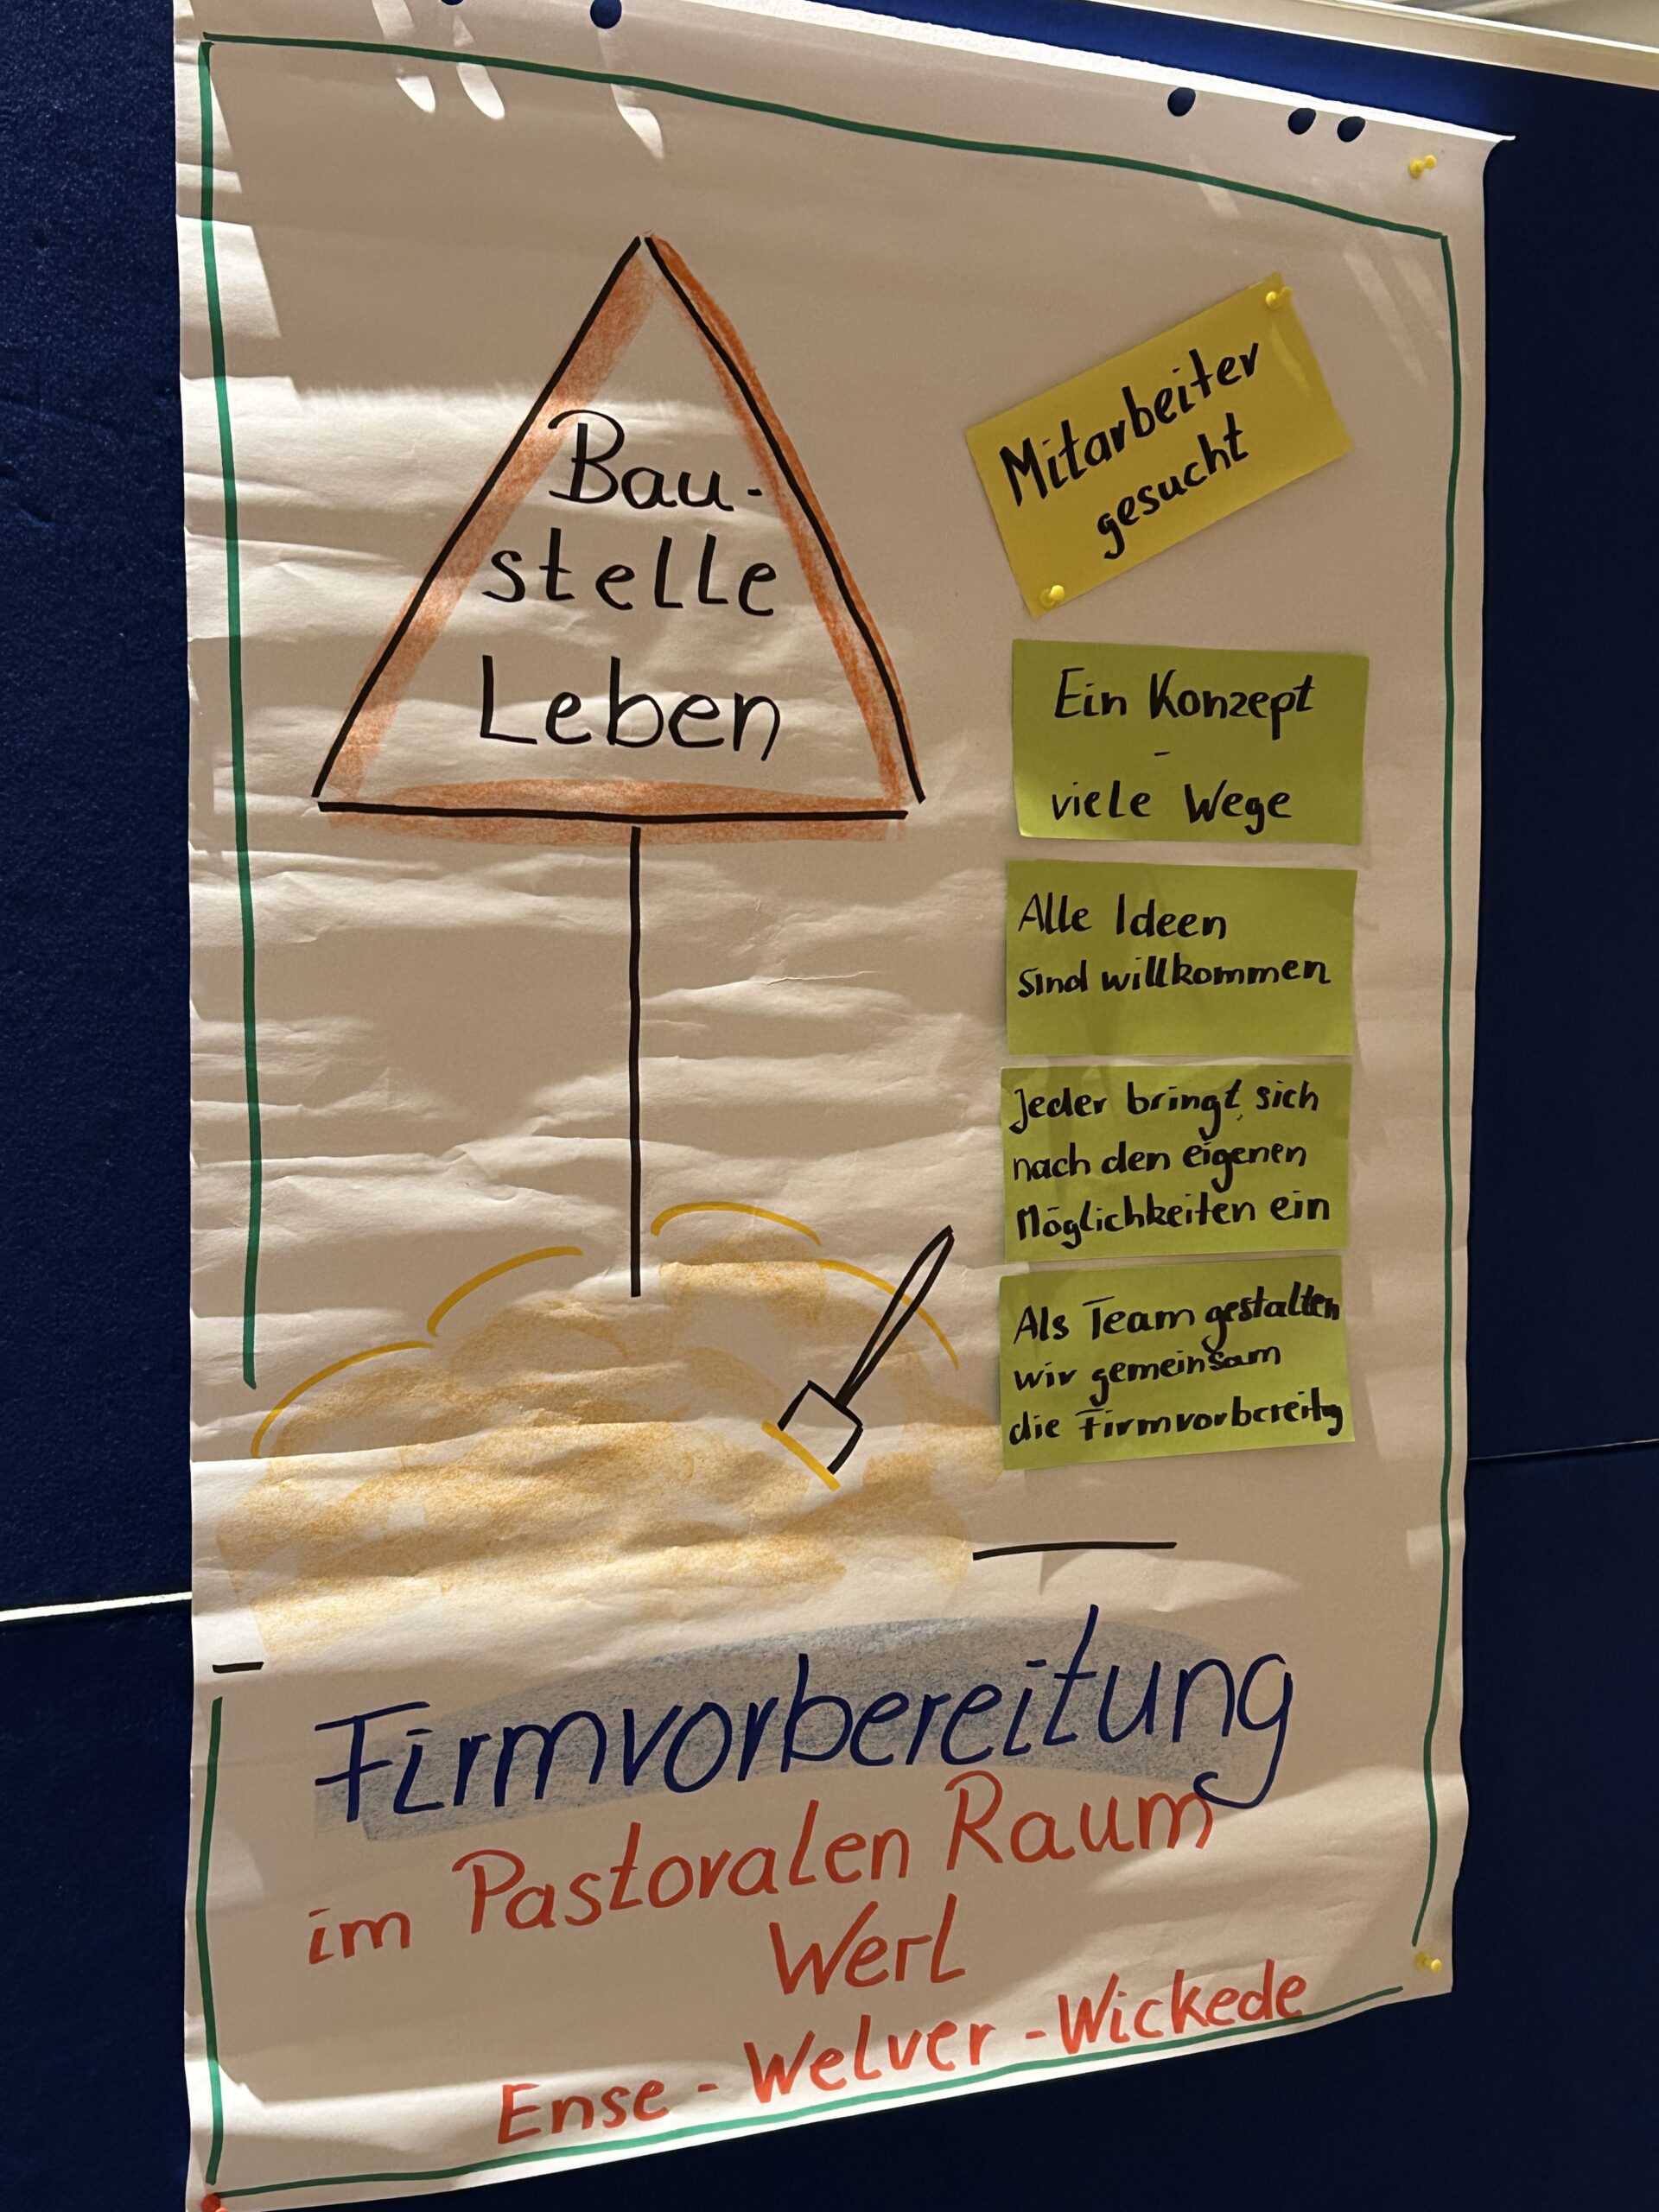 Bau-
stelle
Leben
Mitarbeiter
gesucht
Ein Konzept
-
viele Wege
Alle Ideen
sind willkommen
Jeder bringt sich
nach den eigenen
Möglichkeiten ein
Als Team gestalten
wir gemeinsam
die Firmvorbereitg
Firmvorbereitung
im Pastoralen Raum
Werl
Ense - Welver - Wickede